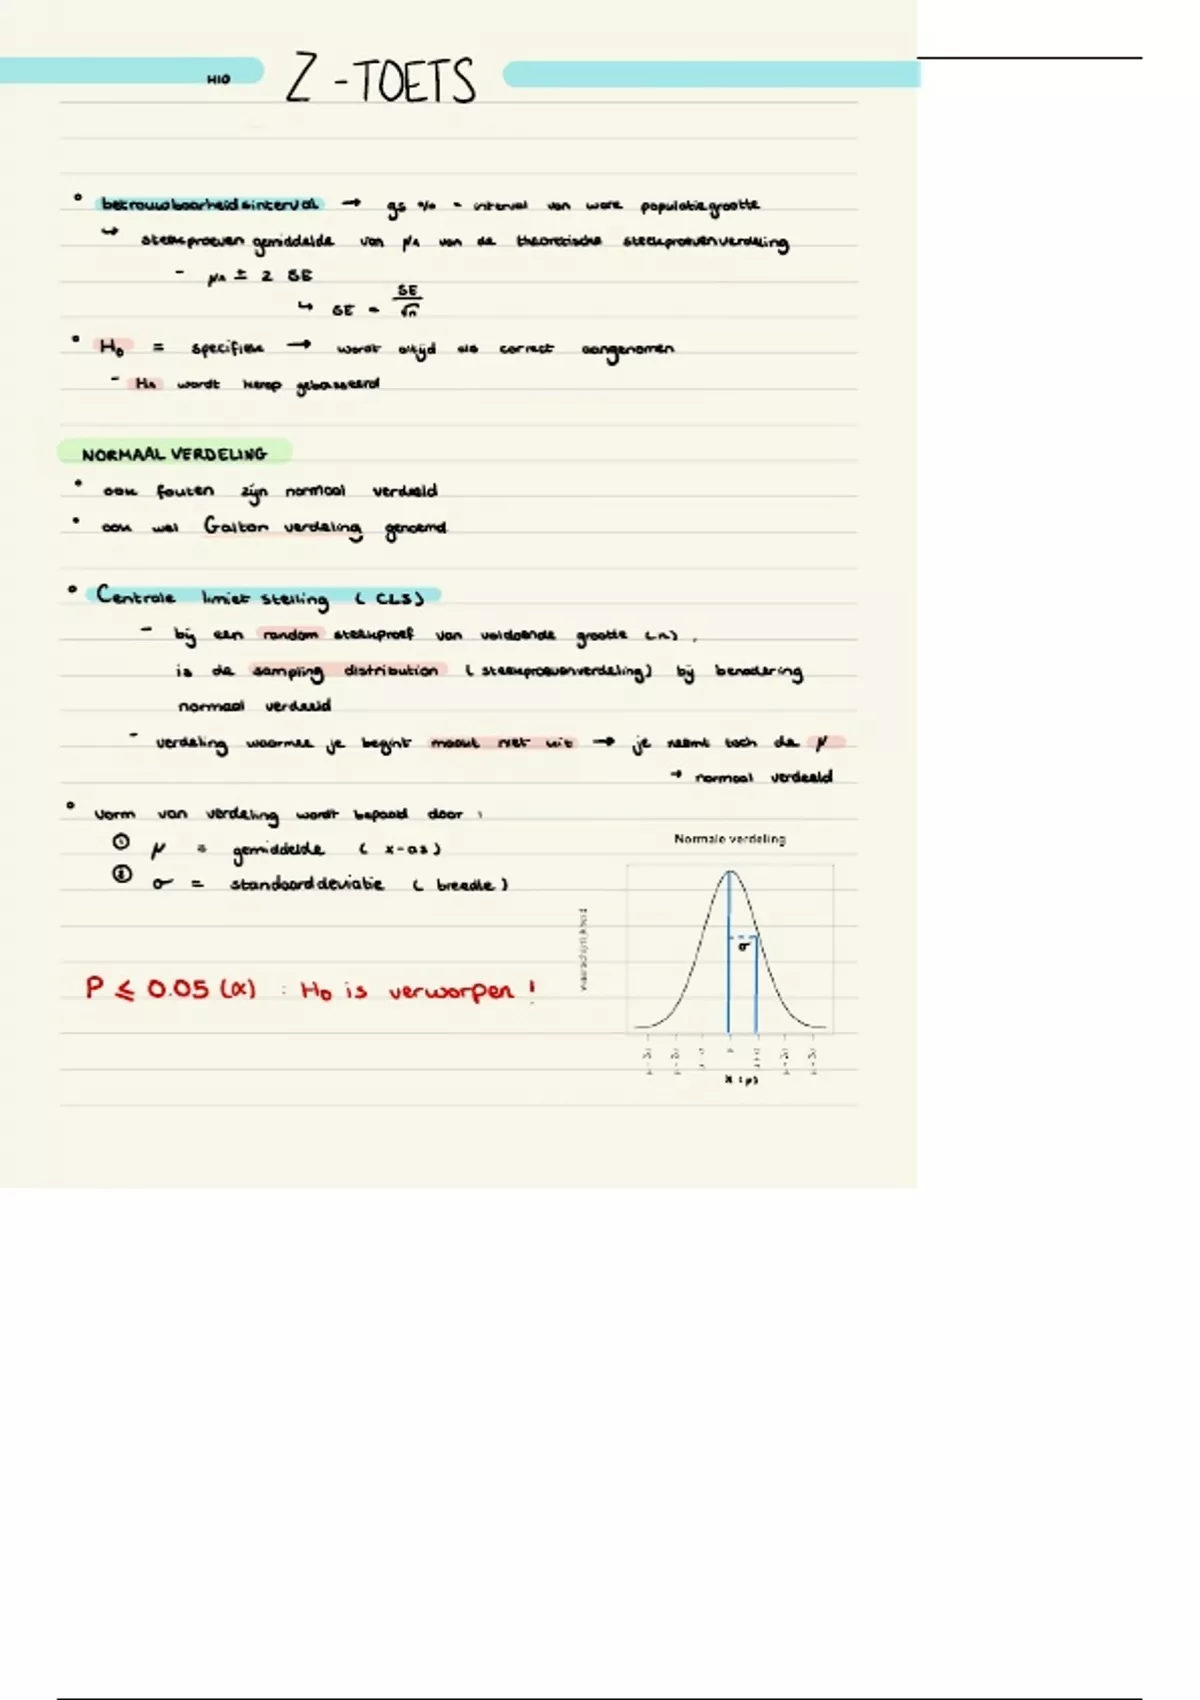 H10 Z-TOETS
° betrouwbaarheidsinterval → 95 % - interval van ware populatiegrootte
↳ steekproeven gemiddelde van μ₁ van de theoretische steekproevenverdeling
- μ₁ ± 2 SE
↳ SE = SE/√n
° H₀ = specifieke → wordt altijd als correct aangenomen
- H₁ wordt hierop gebasseerd
NORMAAL VERDELING
° ook fouten zijn normaal verdeeld
° ook wel Galton verdeling genoemd
° Centrale limiet stelling (CLS)
- bij een random steekproef van voldoende grootte (n),
is de sampling distribution (steekproevenverdeling) bij benadering
normaal verdeeld
- verdeling waarmee je begint maakt niet uit → je neemt toch de μ
→ normaal verdeeld
° vorm van verdeling wordt bepaald door:
① μ = gemiddelde (x-as)
② σ = standaarddeviatie (breedte)
Normale verdeling
σ
P ≤ 0.05 (α) : H₀ is verworpen!